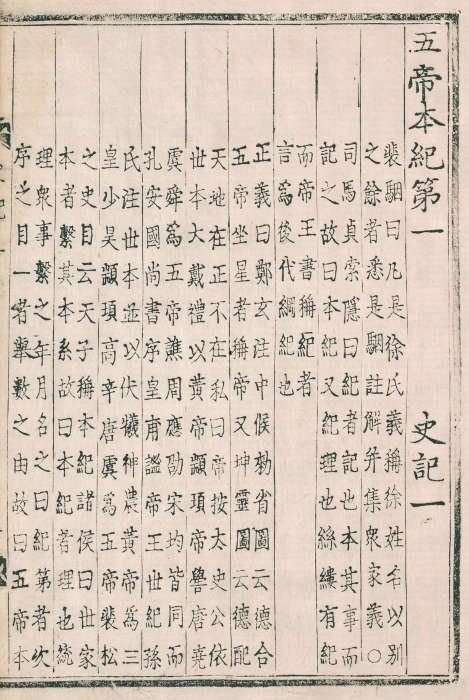 五帝本紀第一 史記一
裴駰曰凡是徐氏義稱徐姓名以別
之餘者悉是駰註解并集衆家義○
司馬貞索隱曰紀者記也本其事而
記之故曰本紀又紀理也絲縷有紀
而帝王書稱紀者
言爲後代綱紀也
正義曰鄭玄注中候勑省圖云德合
五帝坐星者稱帝又坤靈圖云德配
天地在正不在私曰帝按太史公依
世本大戴禮以黃帝顓頊帝嚳唐堯
虞舜爲五帝譙周應劭宋均皆同而
孔安國尚書序皇甫謐帝王世紀孫
氏注世本並以伏犧神農黃帝爲三
皇少昊顓頊高辛唐虞爲五帝裴松
之史目云天子稱本紀諸侯曰世家
本者繫其本系故曰本紀者理也統
理衆事繫之年月名之曰紀第者次
序之目一者擧數之由故曰五帝本